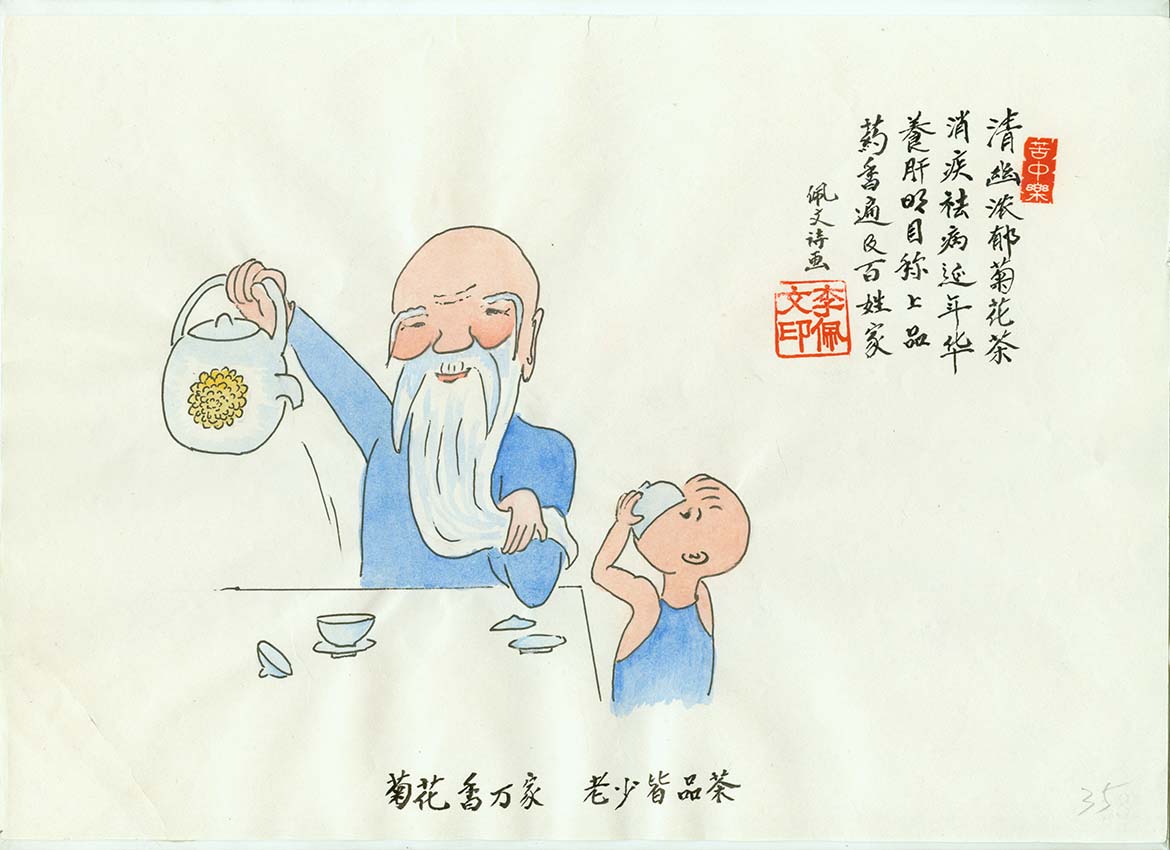 苦中樂
清幽浓郁菊花茶
消疾祛病延年华
養肝明目称上品
药香遍及百姓家
佩文诗画
李佩文印
菊花香万家 老少皆品茶
35